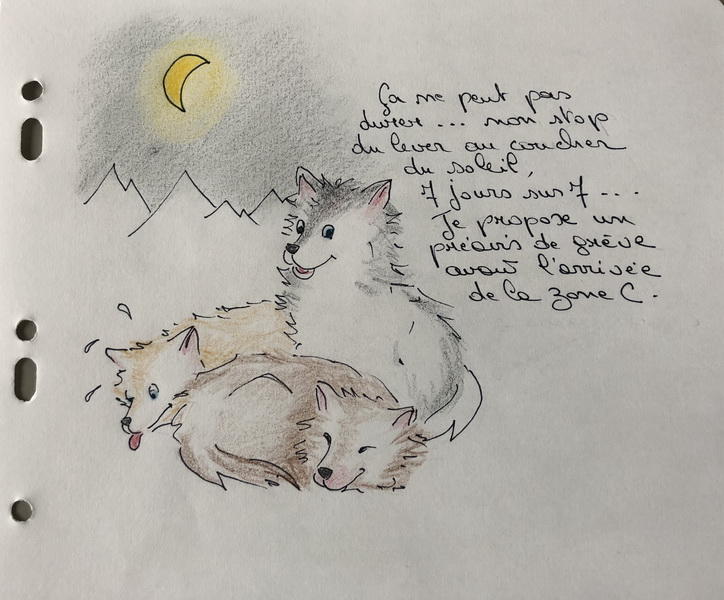 Ça ne peut pas
durer... non stop
du lever au coucher
du soleil,
7 jours sur 7...
Je propose un
préavis de grève
avant l'arrivée
de la zone C.